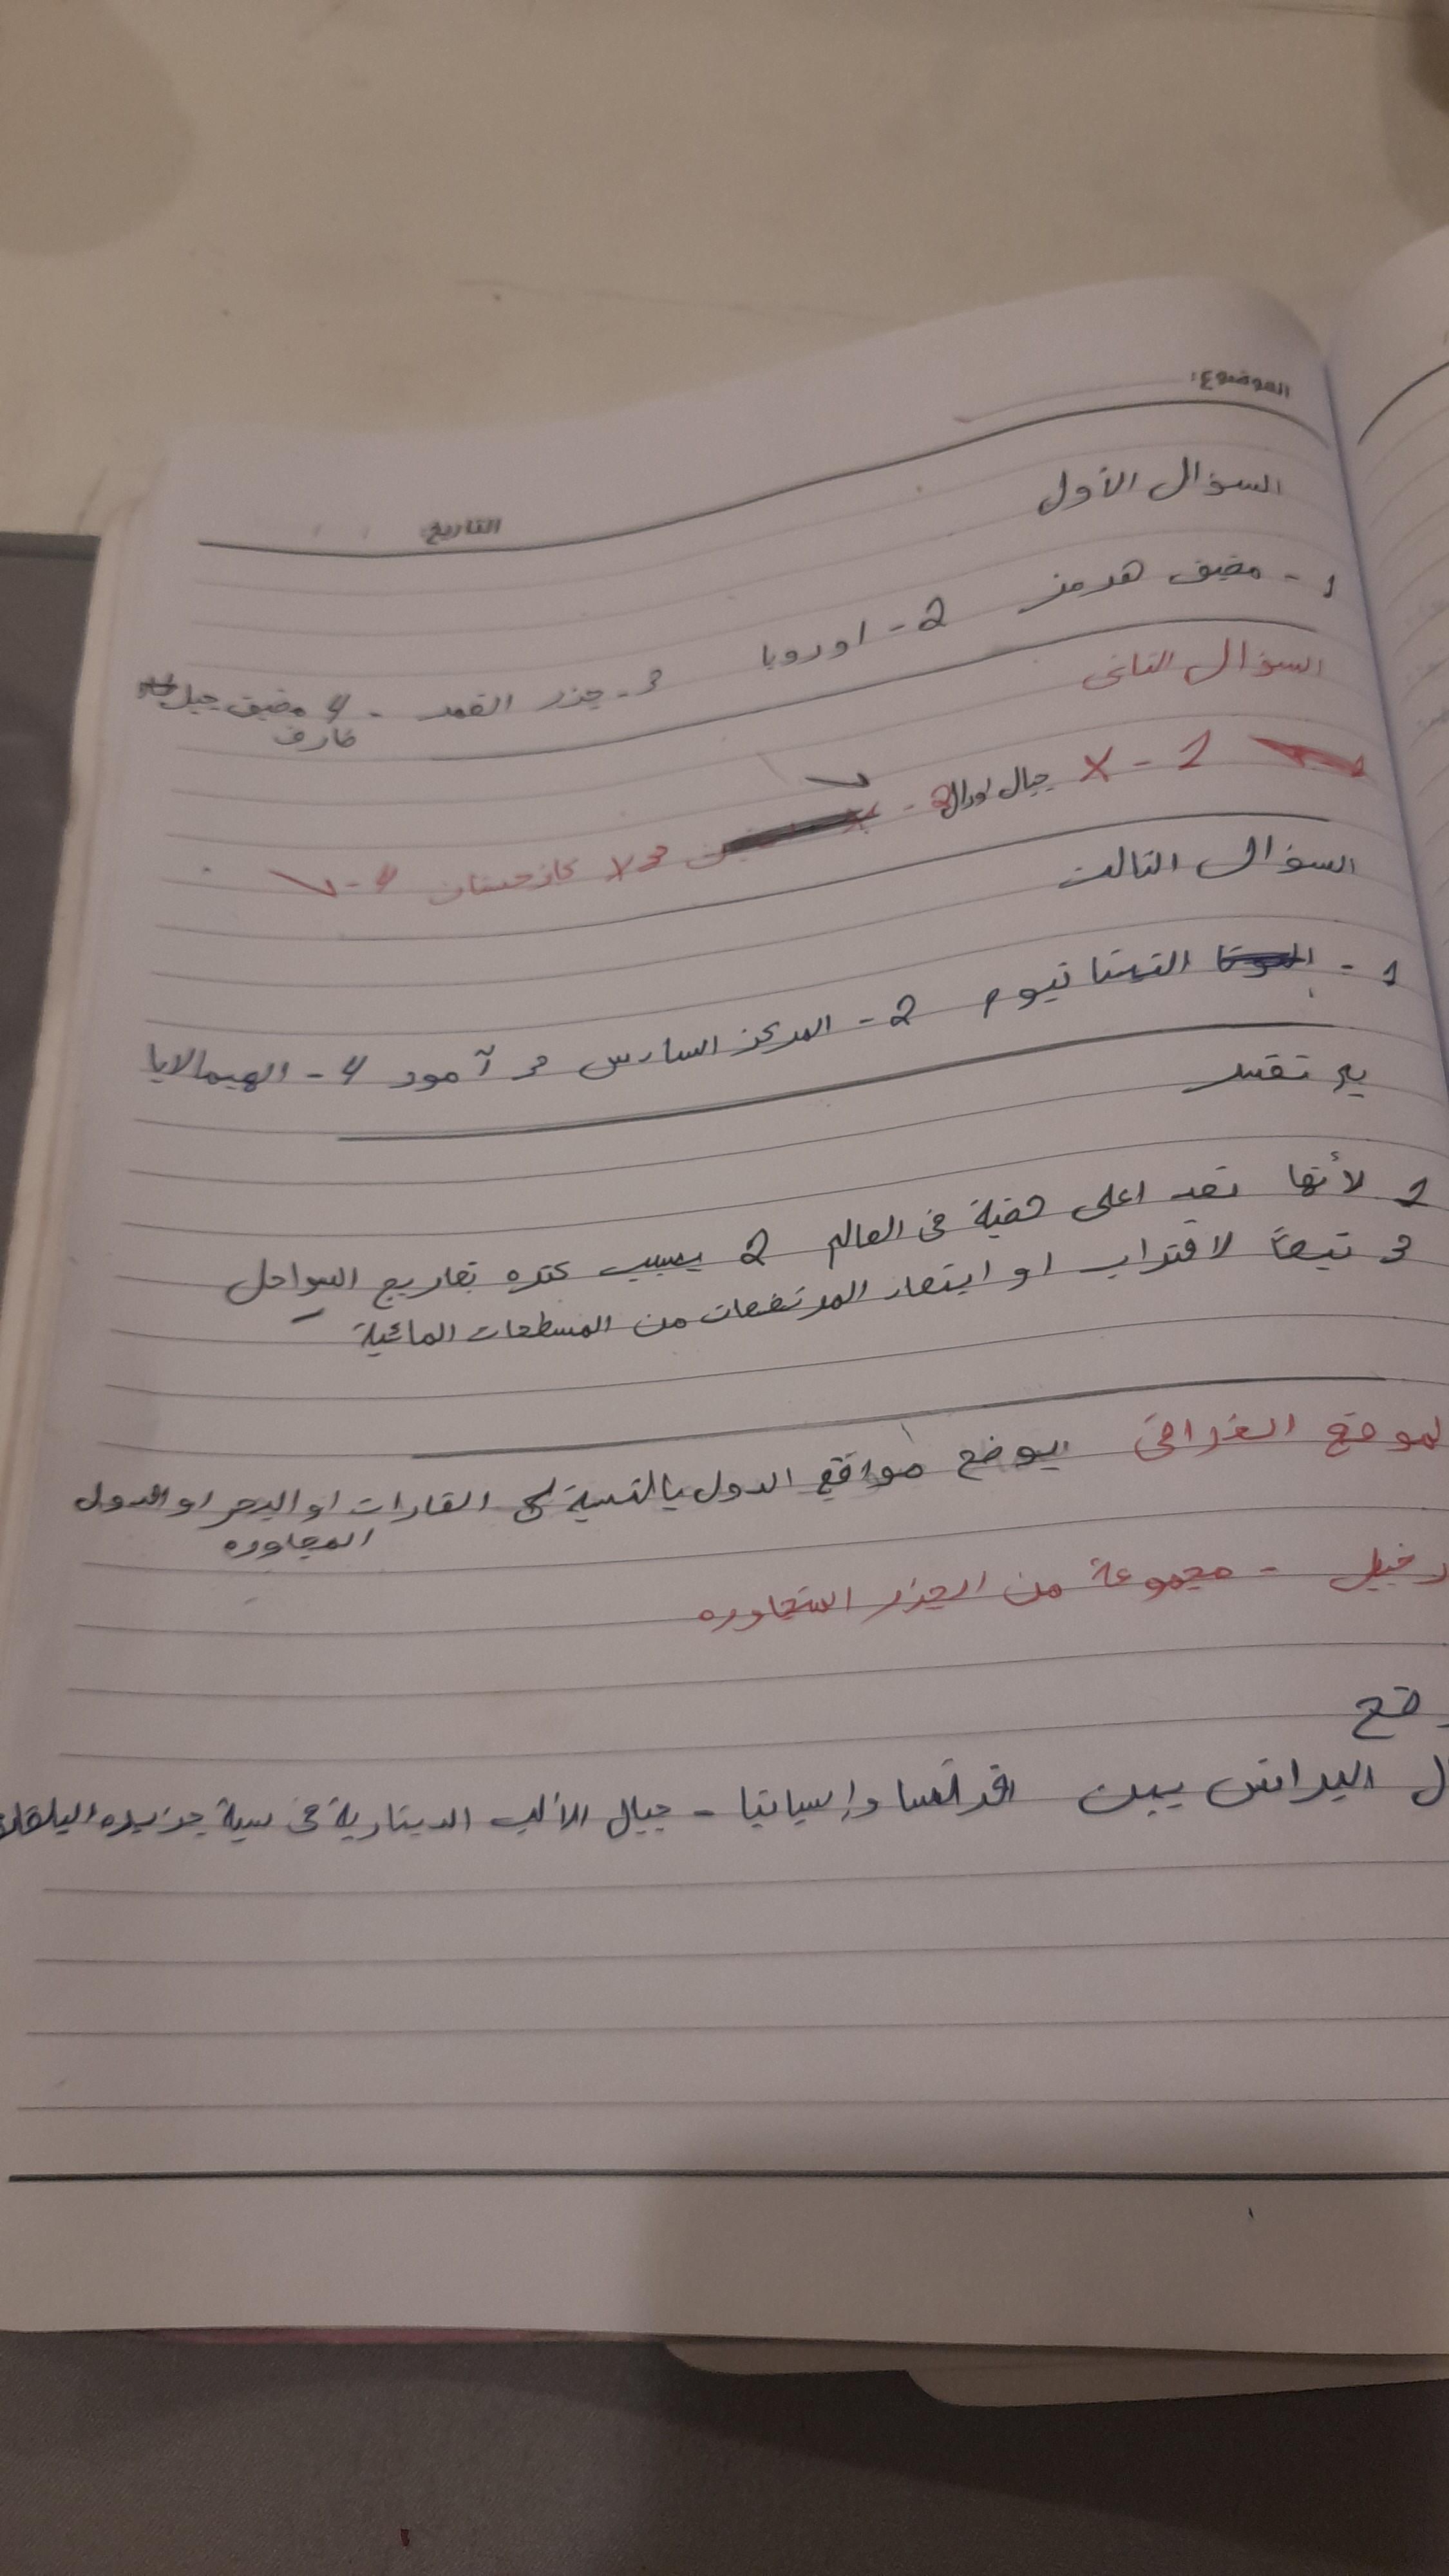 الموضوع:
التاريخ:
السؤال الأول
1 - مضيق هرمز 2 - اوروبا 3 - جزر القمر - 4 مضيق جبل
طارق
السؤال الثانى
1 - X جبال اورال 2 - ✓ 3 X كازخستان 4 - ✓
السؤال الثالث
1 - التيتانيوم 2 - المركز السادس 3 آمور 4 - الهيمالايا
بم تفسر
1 لأنها تعد اعلى هضبة فى العالم 2 بسبب كثره تعاريج السواحل
3 تبعاً لاقتراب او ابتعاد المرتفعات من المسطحات المائية
لموقع الغرافى يوضح مواقع الدول بالنسبة القارات او البحر او الدول
المجاوره
رخبيل - مجموعة من الجزر المتجاوره
قع
ل البرانس بين فرنسا وإسبانيا - جبال الألب الدينارية فى شبة جزيره البلقان